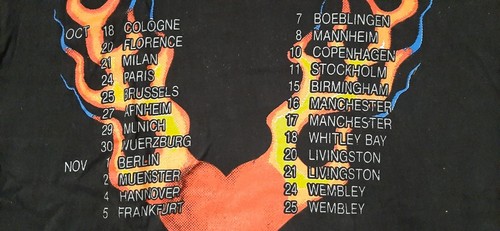 OCT 18 COLOGNE
20 FLORENCE
21 MILAN
24 PARIS
25 BRUSSELS
27 ARNHEIM
29 MUNICH
30 WUERZBURG
NOV 1 BERLIN
2 MUENSTER
4 HANNOVER
5 FRANKFURT
7 BOEBLINGEN
8 MANNHEIM
10 COPENHAGEN
11 STOCKHOLM
15 BIRMINGHAM
16 MANCHESTER
17 MANCHESTER
18 WHITLEY BAY
20 LIVINGSTON
21 LIVINGSTON
24 WEMBLEY
25 WEMBLEY